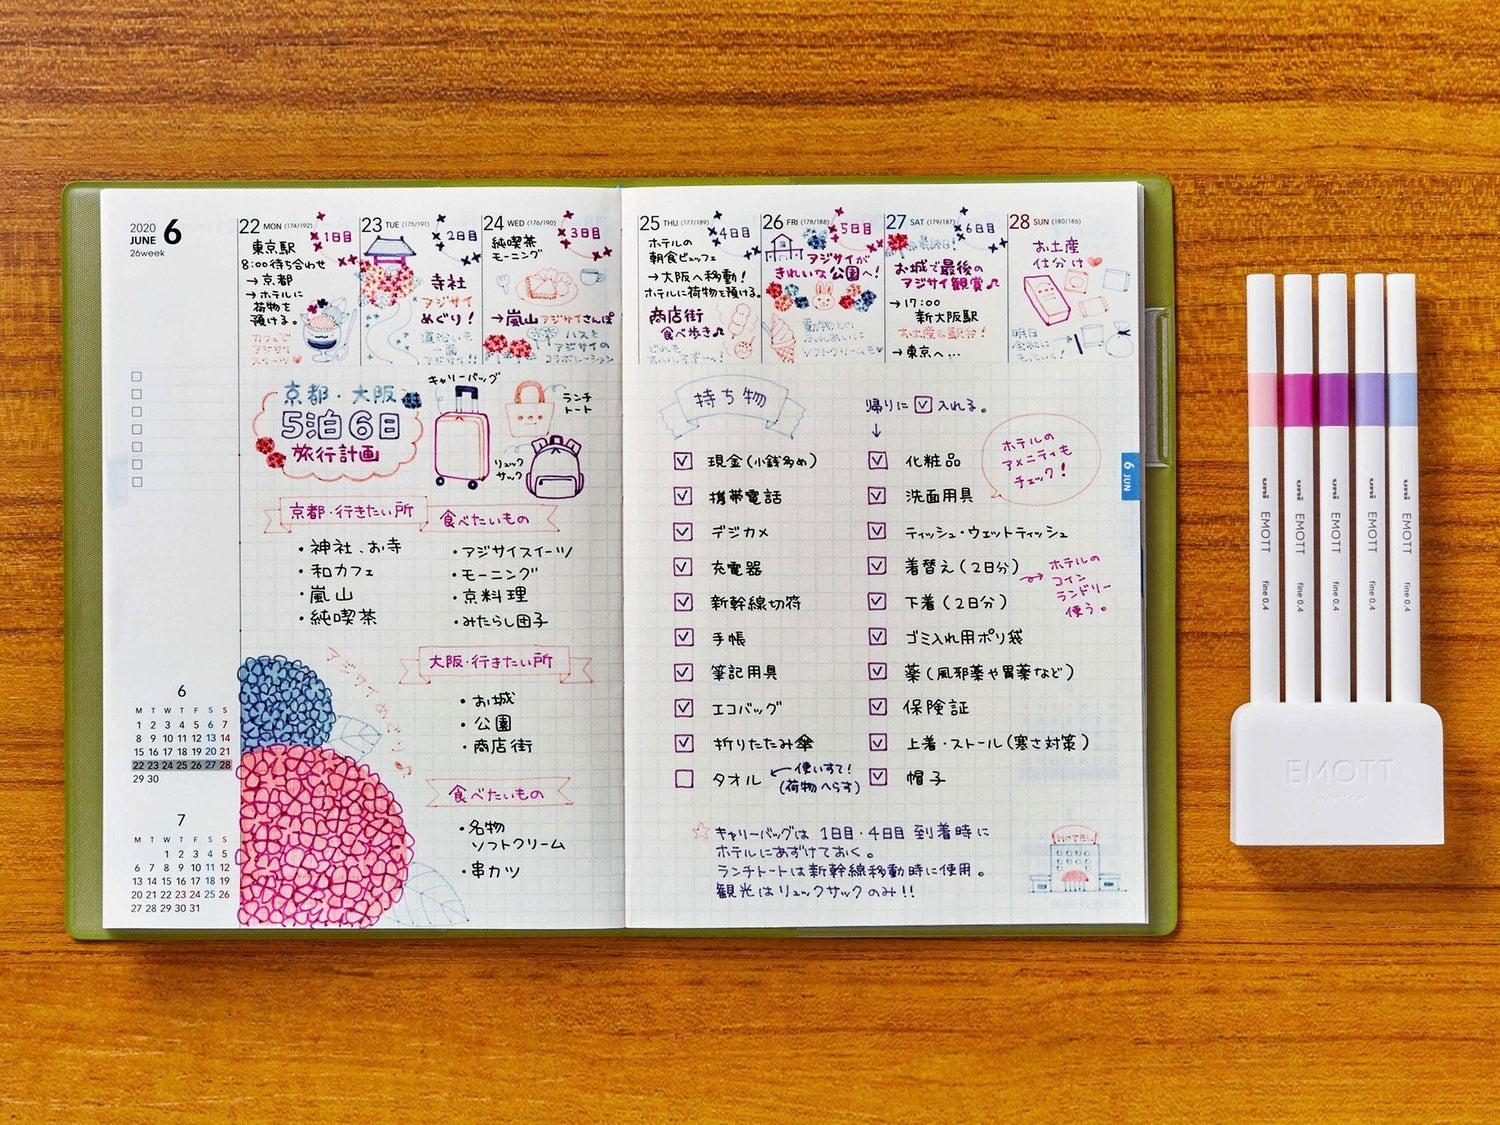 2020
JUNE 6
26week
22 MON (174/192)
1日目
東京駅
8:00待ち合わせ
→京都
→ホテルに
荷物を
預ける。
カフェで
アジサイ
スイーツ
23 TUE (175/191)
2日目
寺社
アジサイ
めぐり!
道沿いも
アジサイ!!
24 WED (176/190)
3日目
純喫茶
モーニング
→嵐山アジサイさんぽ
バスと
アジサイの
コラボレーション
25 THU (177/189)
4日目
ホテルの
朝食ビュッフェ
→大阪へ移動!
ホテルに荷物を預ける。
商店街
食べ歩き♪
26 FRI (178/188)
5日目
アジサイが
きれいな公園へ!
動物との
ふれあいに
ソフトクリームも♥
27 SAT (179/187)
最終日!
6日目
お城で最後の
アジサイ観賞♪
→17:00
新大阪駅
お土産&駅弁!
→東京へ…
28 SUN (180/186)
お土産
仕分け♥
明日
会社に
もっていく!
京都・大阪
5泊6日
旅行計画
キャリーバッグ
ランチ
トート
リュック
サック
京都・行きたい所
・神社、お寺
・和カフェ
・嵐山
・純喫茶
食べたいもの
・アジサイスイーツ
・モーニング
・京料理
・みたらし団子
アジサイめぐり♪
大阪・行きたい所
・お城
・公園
・商店街
食べたいもの
・名物
ソフトクリーム
・串カツ
6
M T W T F S S
1 2 3 4 5 6 7
8 9 10 11 12 13 14
15 16 17 18 19 20 21
22 23 24 25 26 27 28
29 30
7
M T W T F S S
1 2 3 4 5
6 7 8 9 10 11 12
13 14 15 16 17 18 19
20 21 22 23 24 25 26
27 28 29 30 31
持ち物
☑ 現金(小銭多め)
☑ 携帯電話
☑ デジカメ
☑ 充電器
☑ 新幹線切符
☑ 手帳
☑ 筆記用具
☑ エコバッグ
☑ 折りたたみ傘
☐ タオル ← 使いすて!
(荷物へらす)
帰りに☑入れる。
↓
☑ 化粧品
☑ 洗面用具
☑ ティッシュ・ウェットティッシュ
☑ 着替え(2日分)
☑ 下着(2日分)
☑ ゴミ入れ用ポリ袋
☑ 薬(風邪薬や胃薬など)
☑ 保険証
☑ 上着・ストール(寒さ対策)
☑ 帽子
ホテルの
アメニティも
チェック!
→ホテルの
コイン
ランドリー
使う。
☆キャリーバッグは1日目・4日目到着時に
ホテルにあずけておく。
ランチトートは新幹線移動時に使用。
観光はリュックサックのみ!!
HOTEL
6 JUN
uni EMOTT fine 0.4
uni EMOTT fine 0.4
uni EMOTT fine 0.4
uni EMOTT fine 0.4
uni EMOTT fine 0.4
EMOTT
ever fine